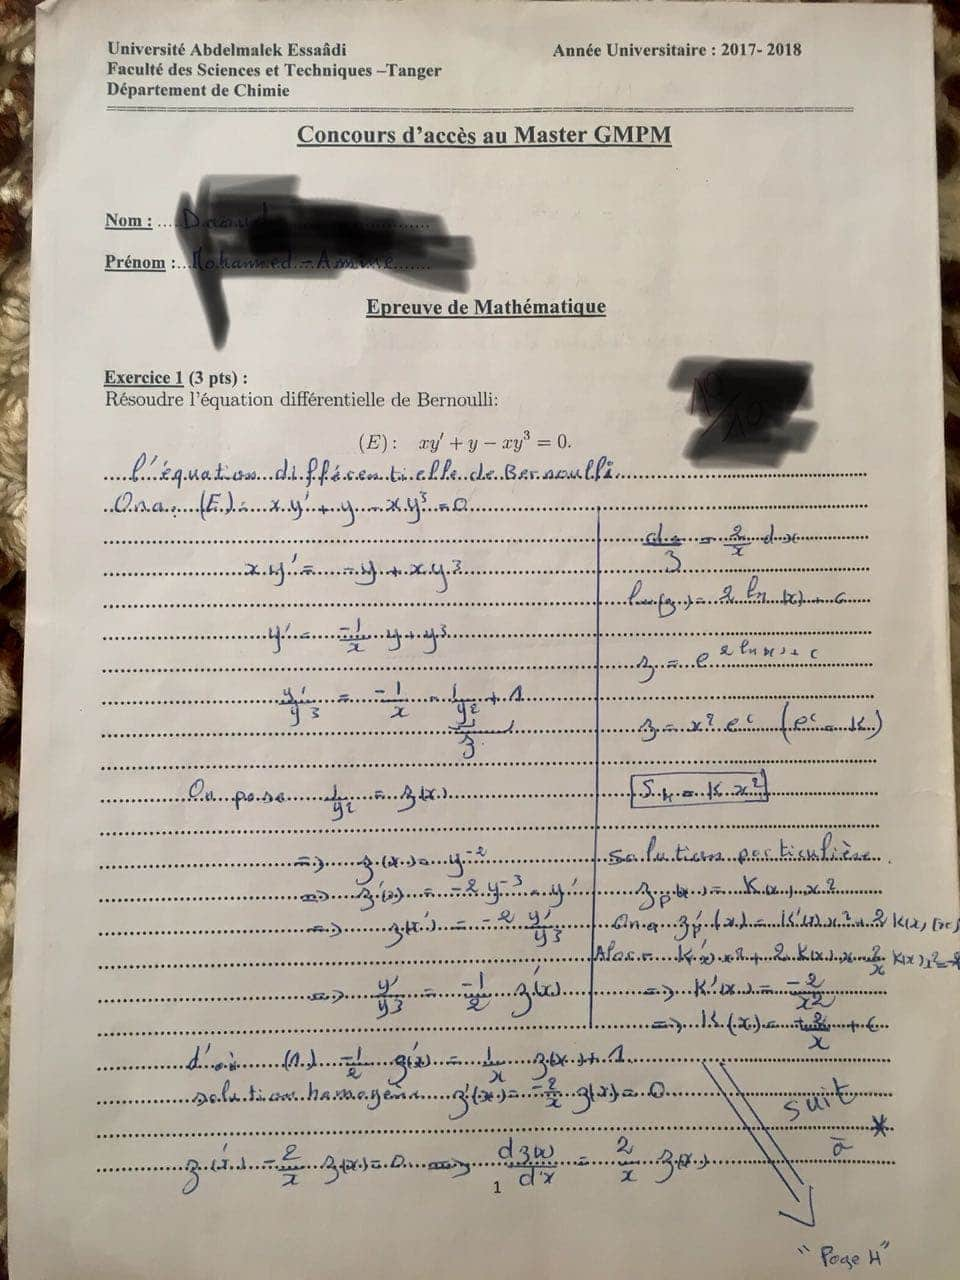 Université Abdelmalek Essaâdi
Année Universitaire : 2017- 2018
Faculté des Sciences et Techniques –Tanger
Département de Chimie
Concours d'accès au Master GMPM
Nom :
Prénom :
Epreuve de Mathématique
Exercice 1 (3 pts) :
Résoudre l'équation différentielle de Bernoulli:
(E) : xy' + y − xy³ = 0.
l'équation différentielle de Bernoulli
On a : (E) = x y' + y - x y³ = 0
x y' = - y + x y³
y' = -1/x y + y³
y'/y³ = -1/x · 1/y² + 1
z
On pose 1/y² = z(x)
=> z(x) = y⁻²
=> z'(x) = -2 y⁻³ · y'
=> z(x') = -2 y'/y³
=> y'/y³ = -1/2 z'(x)
d'où (1) -1/2 z'(x) = 1/x z(x) + 1
solution homogène z'(x) = -2/x z(x) = 0
z'(x) - 2/x z(x) = 0 => dz(x)/dx = 2/x z(x)
dz/z = 2/x dx
ln(z) = 2 ln(x) + c
z = e^(2 ln x + c)
z = x² e^c (e^c = K)
S_h = K x²
Solution particulière
z_p(x) = K(x) x²
On a z'_p(x) = K'(x) x² + 2 K(x)
Alors K'(x) x² + 2 K(x) x - 2/x K(x) x² = -2
=> K'(x) = -2/x²
=> K(x) = 2/x + c
suit
à
*
"Page 4"
1